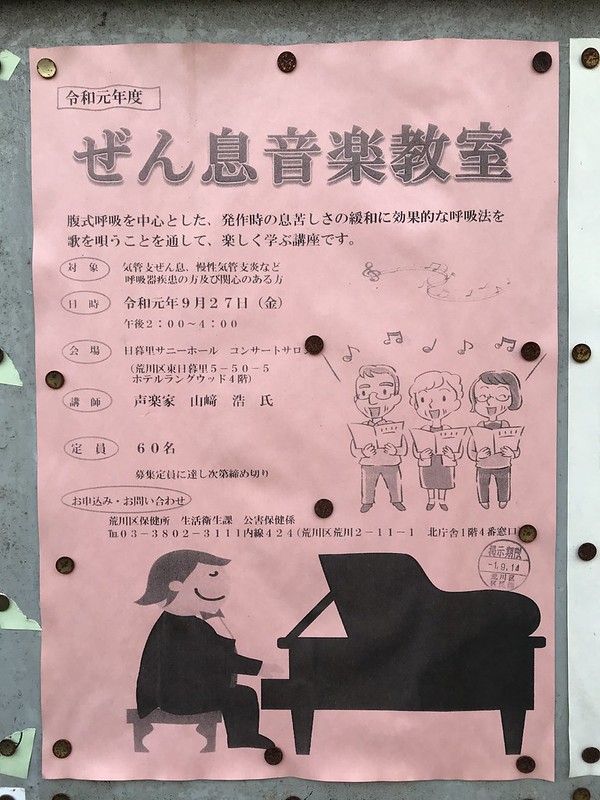 令和元年度
ぜん息音楽教室
腹式呼吸を中心とした、発作時の息苦しさの緩和に効果的な呼吸法を
歌を唄うことを通して、楽しく学ぶ講座です。
対象 気管支ぜん息、慢性気管支炎など
呼吸器疾患の方及び関心のある方
日時 令和元年9月27日(金)
午後2:00~4:00
会場 日暮里サニーホール コンサートサロン
(荒川区東日暮里5-50-5
ホテルラングウッド4階)
講師 声楽家 山﨑 浩 氏
定員 60名
募集定員に達し次第締め切り
お申込み・お問い合わせ
荒川区保健所 生活衛生課 公害保健係
℡03-3802-3111内線424(荒川区荒川2-11-1 北庁舎1階4番窓口
掲示期限
-1.9.14
荒川区